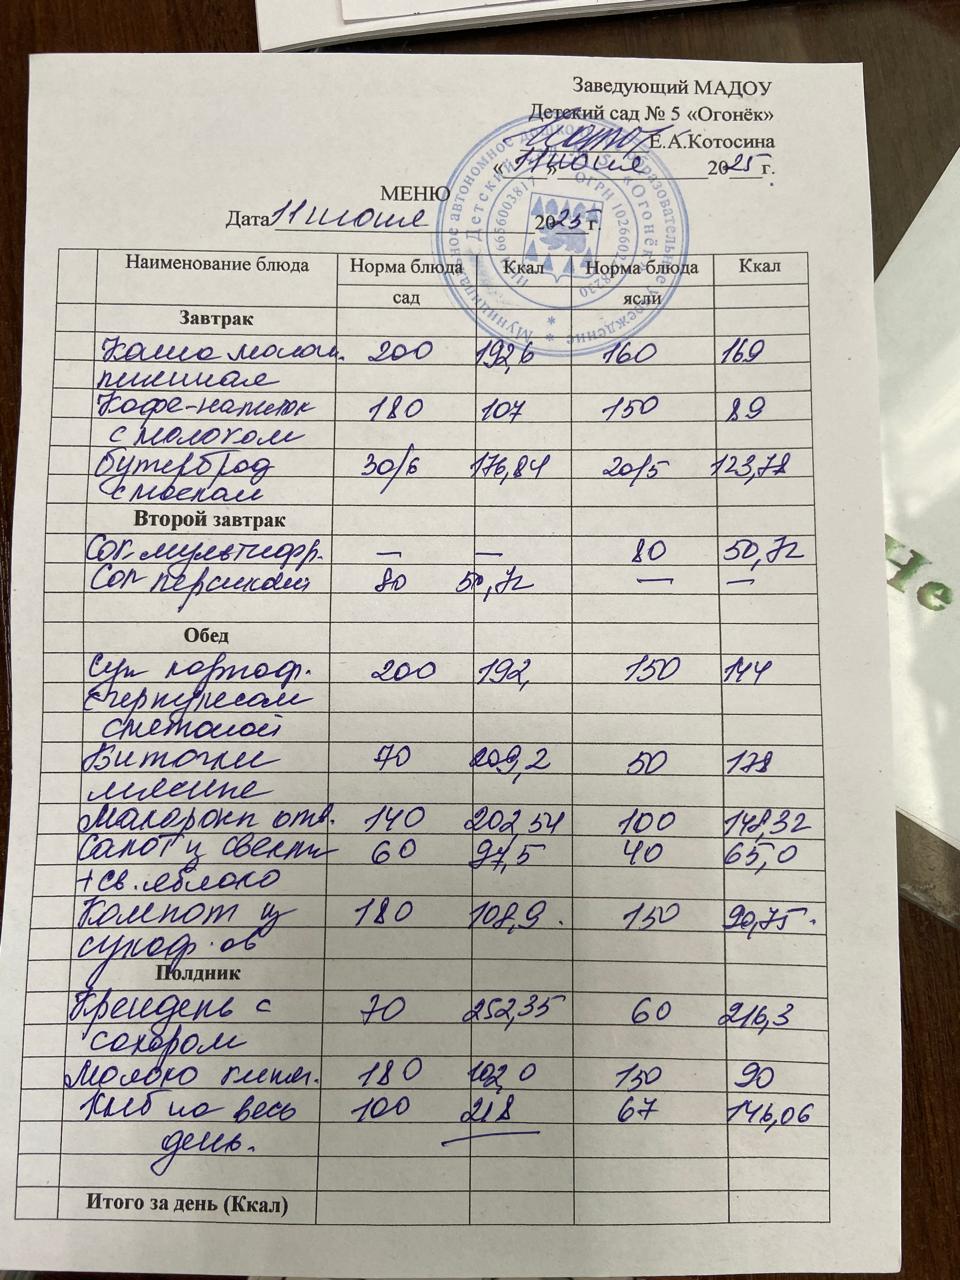 Заведующий МАДОУ
Детский сад № 5 «Огонёк»
Е.А.Котосина
«11» июля 2025 г.
МЕНЮ
Дата 11 июля 2025 г.
Наименование блюда Норма блюда Ккал Норма блюда Ккал
сад ясли
Завтрак
Каша молоч. 200 192,6 160 169
пшенная
Кофе-напиток 180 107 150 89
с молоком
бутерброд 30/6 176,84 20/5 123,78
с маслом
Второй завтрак
Сок мультифр. — — 80 50,72
Сок персиковый 80 50,72 — —
Обед
Суп картоф. 200 192, 150 144
с геркулесом
сметаной
Биточки 70 209,2 50 178
мясные
Макароны отв. 140 202,54 100 148,32
Салат из свеклы 60 97,5 40 65,0
+св. яблоко
Компот из 180 108,9. 150 90,75.
сухоф-ов
Полдник
Крендель с 70 252,35 60 216,3
сахаром
Молоко кипяч. 180 102,0 150 90
Хлеб на весь 100 218 67 146,06
день.
Итого за день (Ккал)